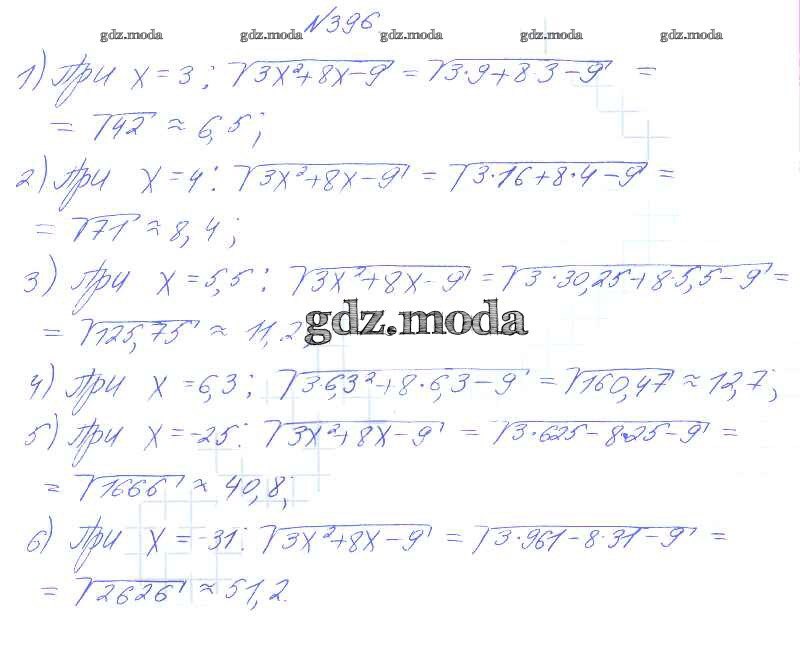 №396
gdz.moda gdz.moda gdz.moda gdz.moda gdz.moda
1) При x = 3: √3x²+8x−9 = √3·9+8·3−9 =
= √42 ≈ 6,5;
2) При x = 4: √3x²+8x−9 = √3·16+8·4−9 =
= √71 ≈ 8,4;
3) При x = 5,5: √3x²+8x−9 = √3·30,25+8·5,5−9 =
= √125,75 ≈ 11,2;
gdz.moda
4) При x = 6,3; √3·6,3²+8·6,3−9 = √160,47 ≈ 12,7;
5) При x = −25: √3x²+8x−9 = √3·625−8·25−9 =
= √1666 ≈ 40,8;
6) При x = −31: √3x²+8x−9 = √3·961−8·31−9 =
= √2626 ≈ 51,2.